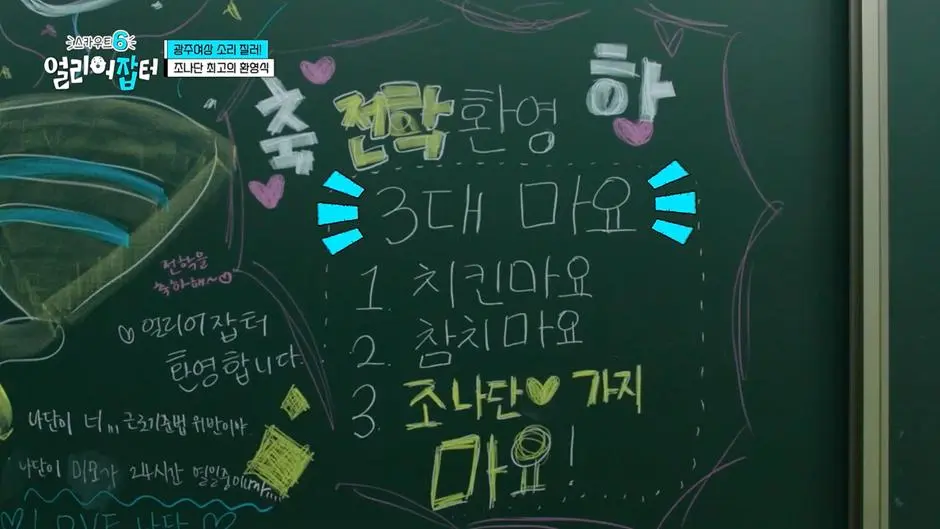 스카우트6
얼리어잡터
광주여상 소리 질러!
조나단 최고의 환영식
축 전학 환영 하
3대 마요
1. 치킨마요
2. 참치마요
3. 조나단♥ 가지
마요!
전학을
축하해~♡
♡얼리어잡터
환영합니다.
나단이 너,,, 근로기준법 위반이야.
나단이 미모가 24시간 열일중이니까,,,,
I LOVE 나단 ♡